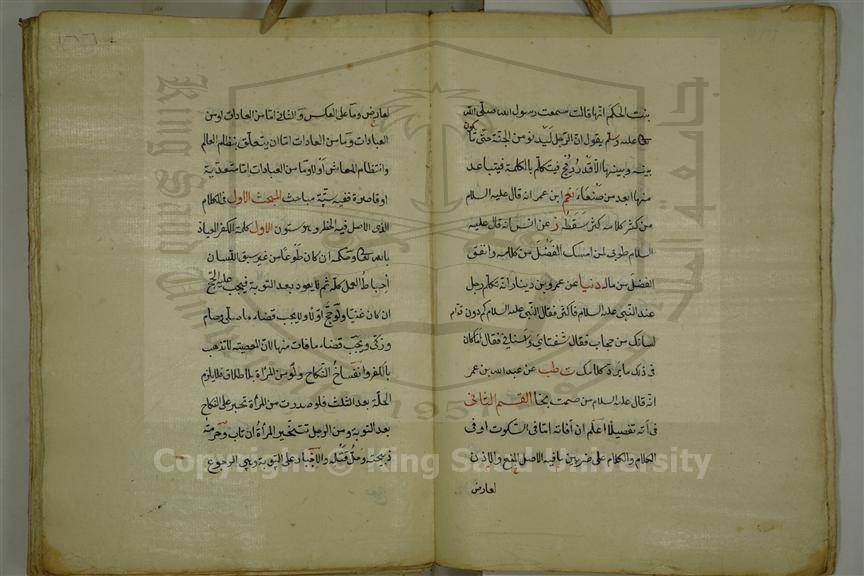 بنت الحكم انها قالت سمعت رسول الله صلى الله
تعالى عليه وسلم يقول ان الرجل ليدنو من الجنة حتى ما يكون
بينه وبينها الا قدر رمح فيتكلم بالكلمة فيتباعد
منها ابعد من صنعاء نعيم ابن عمر انه قال عليه السلام
من كثر كلامه كثر سقطه ز عن انس انه قال عليه
السلام طوبى لمن امسك الفضل من كلامه وانفق
الفضل من ماله دنيا عن عمرو بن دينار انه تكلم رجل
عند النبي عليه السلام فاكثر فقال النبي عليه السلام كم دون
لسانك من حجاب فقال شفتاي واسناني فقال افما كان
في ذلك ما يرد كلامك ت طب عن عبد الله بن عمر
انه قال عليه السلام من صمت نجا القسم الثاني
في آفاته تفصيلا اعلم ان آفاته اما في السكوت او في
الكلام والكلام على ضربين ما فيه الاصل المنع والاذن
لعارض
لعارض وما على العكس والثاني اما من العادات او من
العبادات وما من العادات اما ان يتعلق بنظام العالم
وانتظام المعاش او لا وما من العبادات اما متعدية
او قاصرة ففيه ستة مباحث المبحث الاول في الكلام
الذي الاصل فيه الحظر وهو ستون الاول كلمة الكفر العياذ
بالله تعالى وحكمه ان كان طوعا من غير سبق اللسان
احباط العمل كله ثم لا يعود بعد التوبة فيجب عليه الحج
ان كان غنيا ولو حج اولا ولا يجب قضاء ما صلى وصام
وزكى ويجب قضاء ما فات منها لان المعصية لا تذهب
بالكفر وانفساخ النكاح ولو من المرأة بلا طلاق فلا يلزم
الحلة بعد الثلث فلو صدرت من المرأة تجبر على النكاح
بعد التوبة ومن الرجل تتخير المرأة ان تاب وحرمة
ذبيحته وحل قتله والاجبار على التوبة وهي الرجوع
Copyright © King Saud University
King Saud University
جامعة الملك سعود
1957